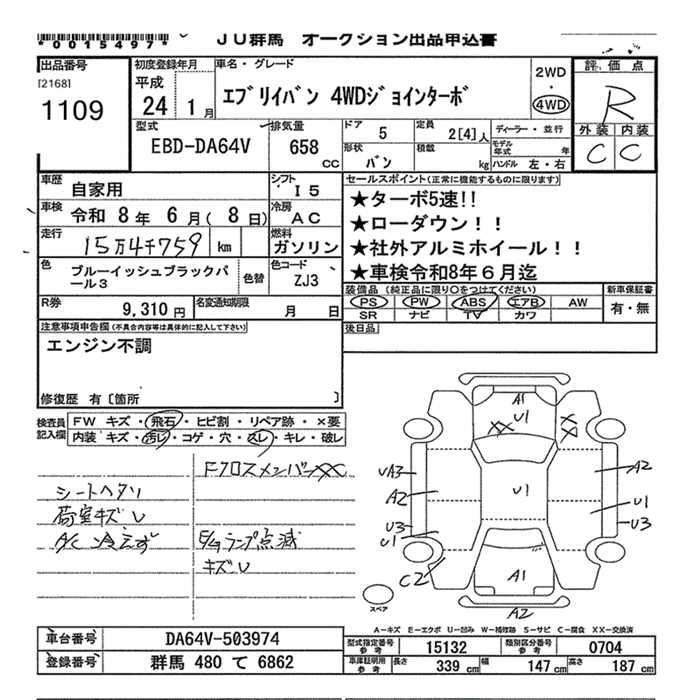 *0015497*
JU群馬 オークション出品申込書
出品番号
[2168]
1109
初度登録年月
平成
24 1月
車名・グレード
エブリイバン 4WDジョインターボ
2WD
・
4WD
評価点
R
外装 内装
C C
型式
EBD-DA64V
排気量
658
CC
ドア
5
定員
2[4]人
形状
バン
積載
kg
ディーラー・並行
モデル年式 年
ハンドル 左・右
車歴
自家用
シフト
I5
車検
令和 8年 6月(8日)
冷房
AC
走行
15万4千759 km
燃料
ガソリン
色
ブルーイッシュブラックパール3
色替
色コード
ZJ3
R券
9,310円
名変通知期限
月 日
セールスポイント(正常に機能するものに限ります)
★ターボ5速!!
★ローダウン!!
★社外アルミホイール!!
★車検令和8年6月迄
装備品 (純正品に限り○をつけてください)
PS PW ABS エアB AW
SR ナビ TV カワ
新車保証書
有・無
後日品
注意事項申告欄(不具合内容等は具体的に記入して下さい)
エンジン不調
修復歴 有〔箇所 〕
検査員記入欄
FW キズ・飛石・ヒビ割・リペア跡・×要
内装 キズ・汚レ・コゲ・穴・スレ・キレ・破レ
Fクロスメンバー XX
シートヘタリ
荷室キズU
A/C 冷えず
E/gランプ点滅
キズU
A1
U1
XX
XX
UA3
A2
U3
U1
C2
U1
A2
U1
U3
A1
A2
スペア
A－キズ E－エクボ U－凹み W－補修跡 S－サビ C－腐食 XX－交換済
車台番号
DA64V-503974
登録番号
群馬 480 て 6862
型式指定番号 参考
15132
類別区分番号 参考
0704
車庫証明用 参考
長さ 339 cm
幅 147 cm
高さ 187 cm